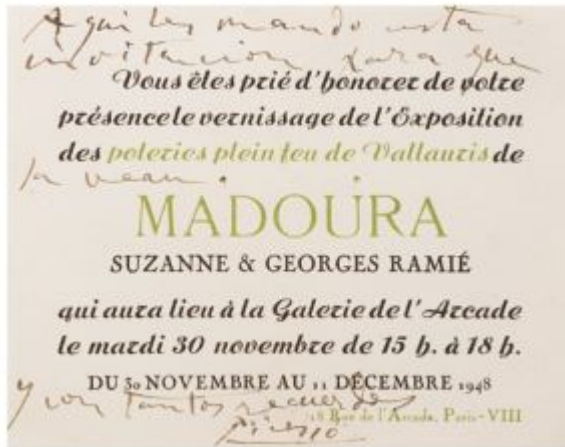 Aqui les mando esta
invitacion para que
Vous êtes prié d'honorer de votre
présence le vernissage de l'Exposition
des poteries plein feu de Vallauris de
la vean
MADOURA
SUZANNE & GEORGES RAMIÉ
qui aura lieu à la Galerie de l'Arcade
le mardi 30 novembre de 15 h. à 18 h.
DU 30 NOVEMBRE AU 11 DÉCEMBRE 1948
y con tantos recuerdos
18 Rue de l'Arcade, Paris-VIII
Picasso